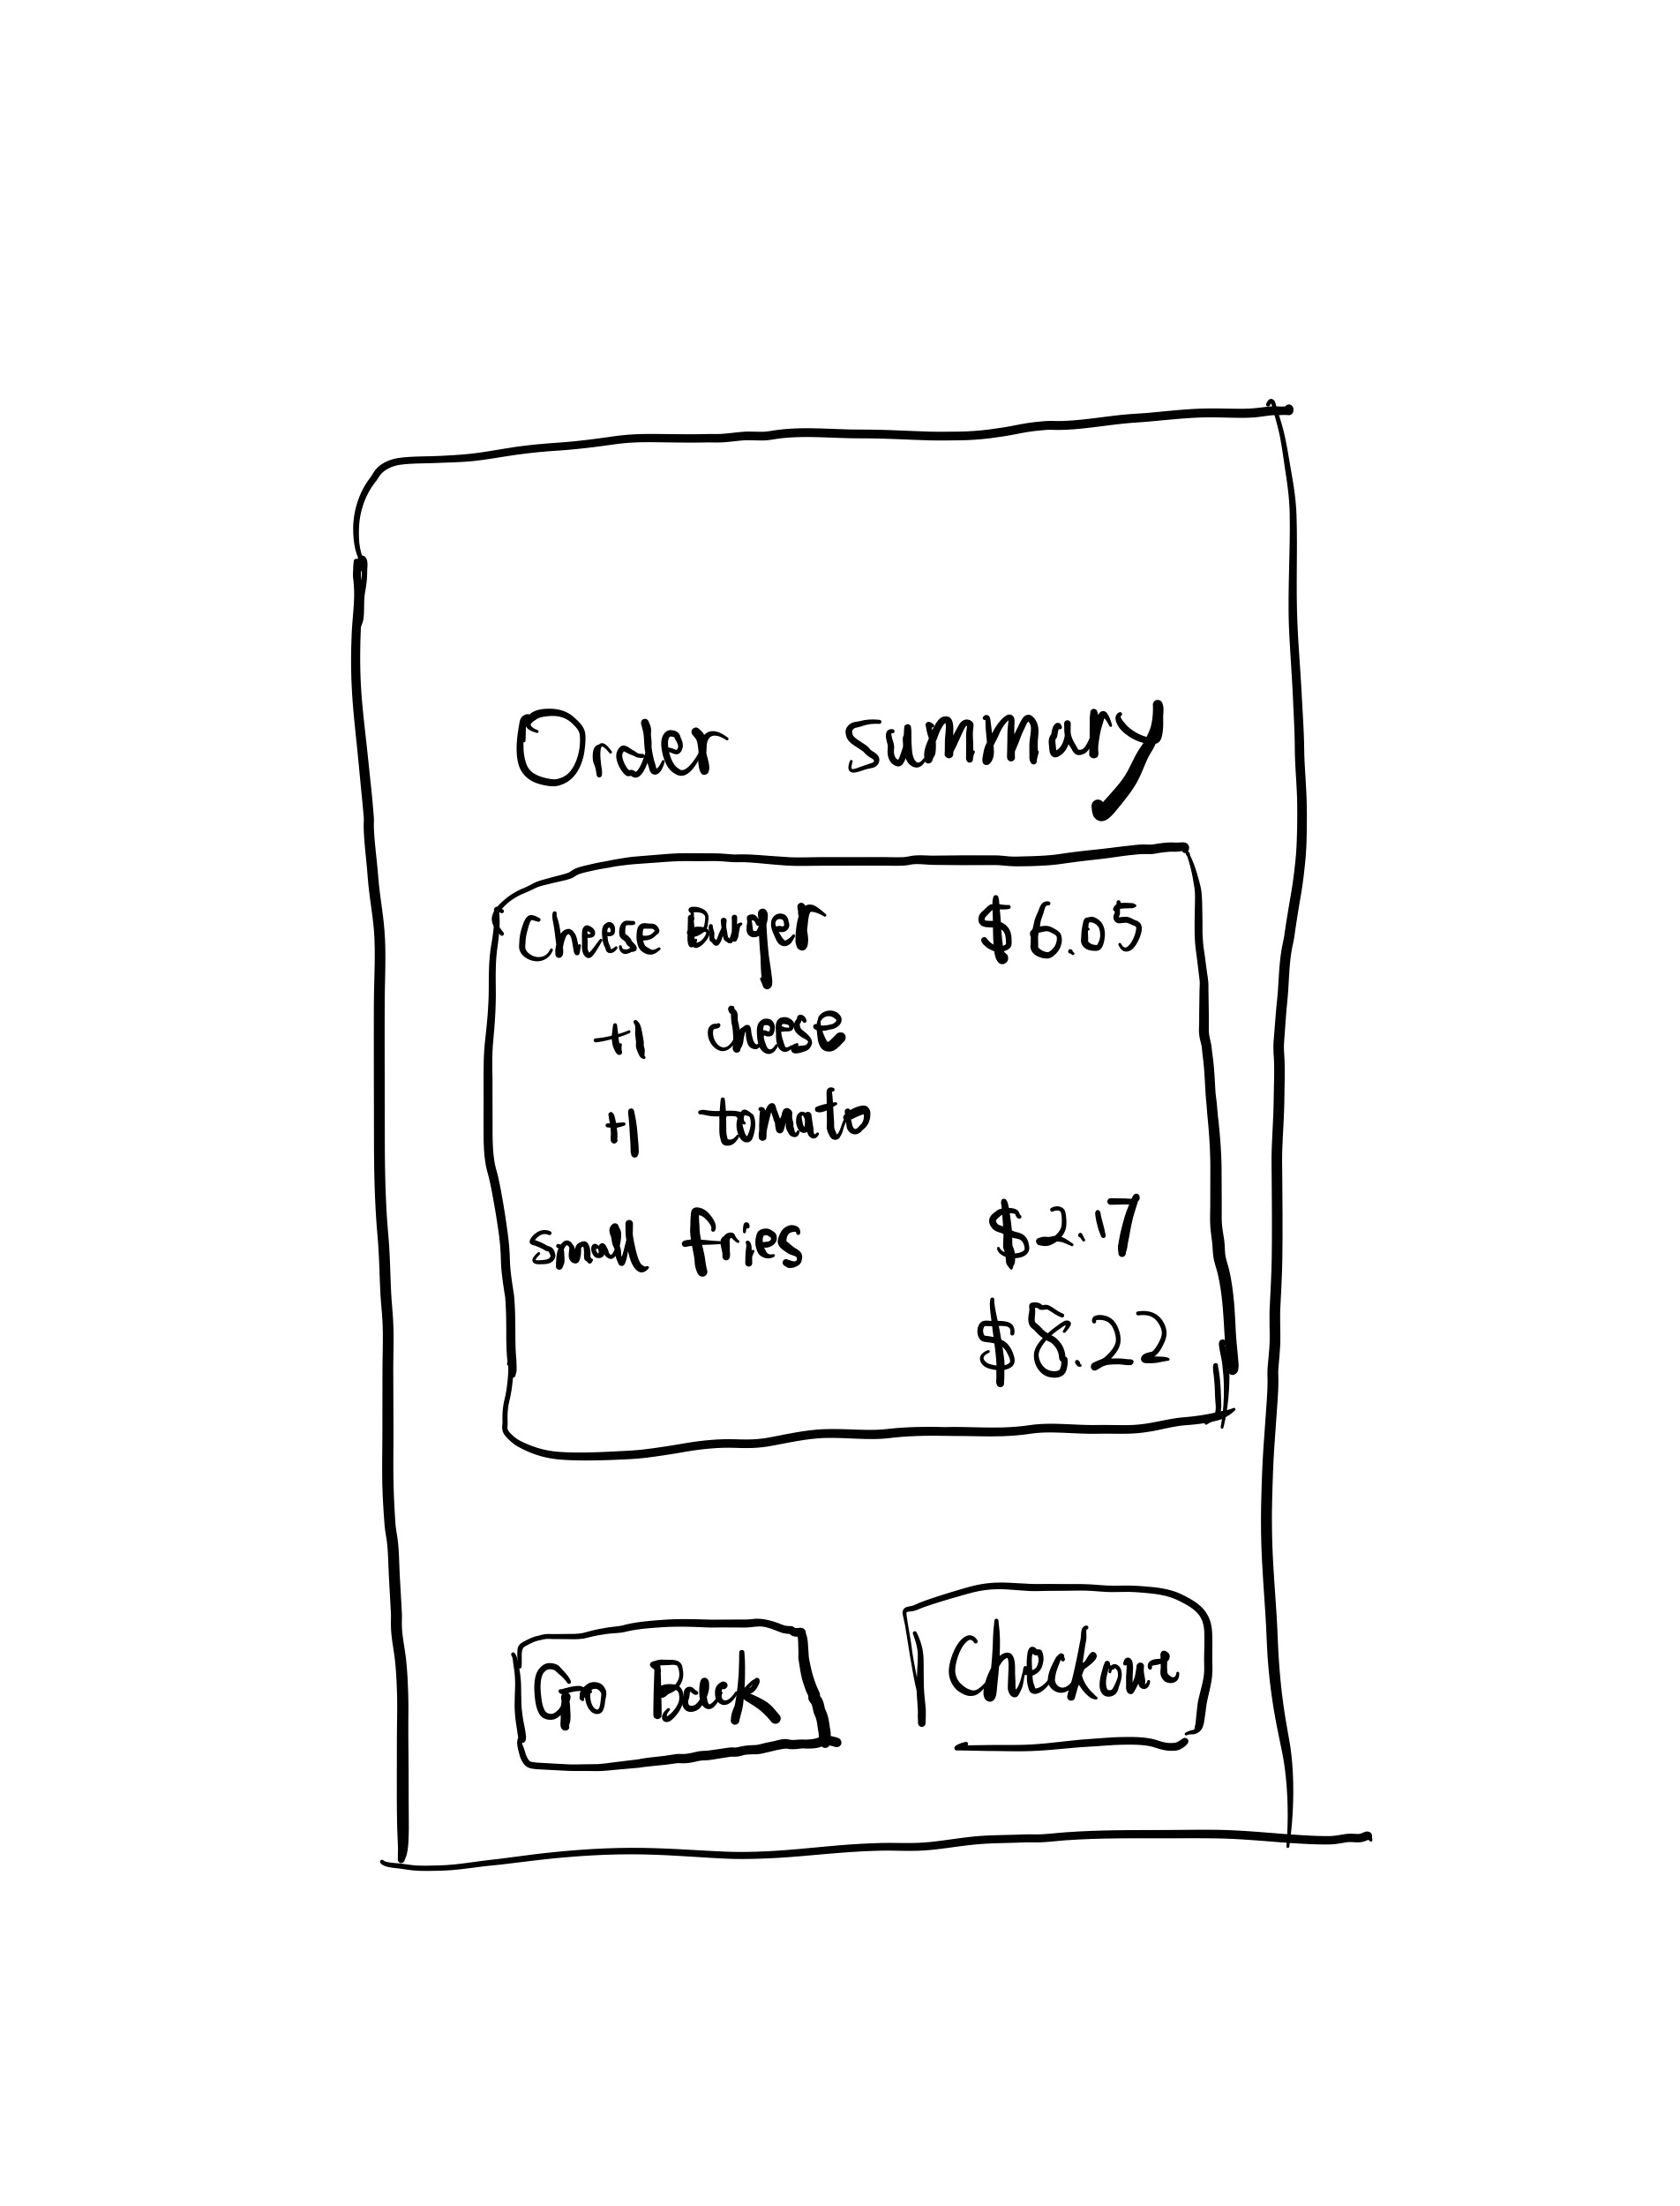 Order summary
Cheese Burger $6.05
+1 cheese
+1 tomato
small fries $2.17
$8.22
Go Back
Checkout